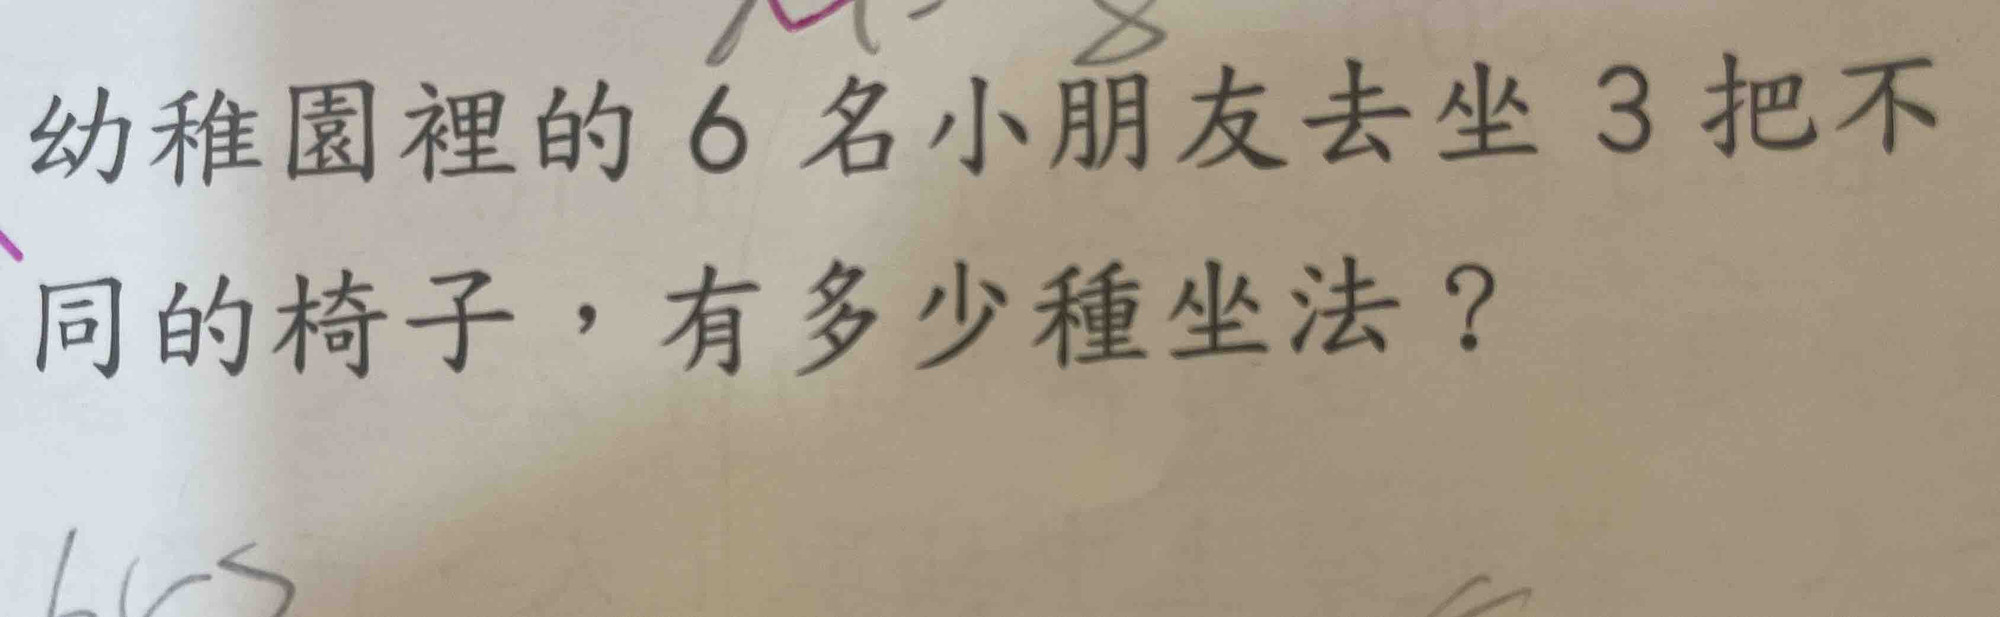 幼稚園裡的 6 名小朋友去坐 3 把不
同的椅子，有多少種坐法？